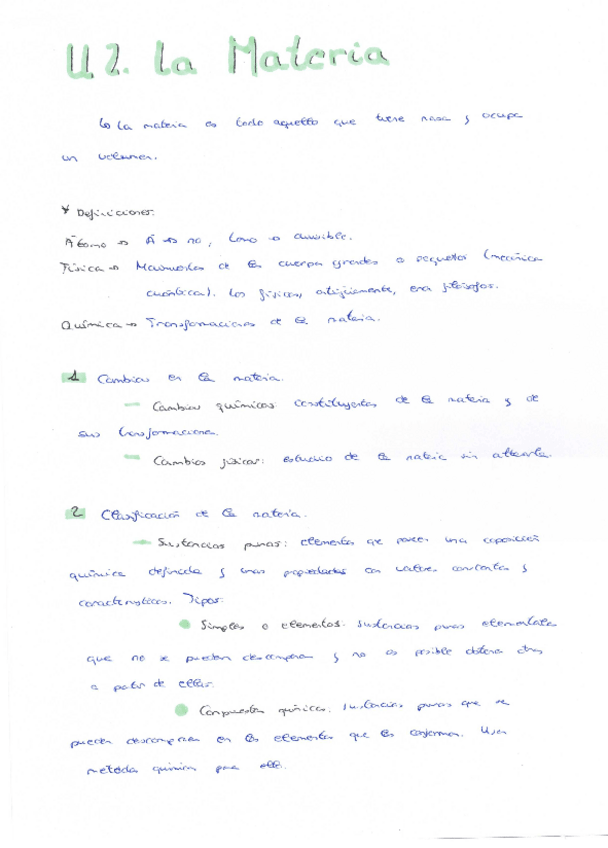 U.2. La Materia
↳ La materia es todo aquello que tiene masa y ocupa
un volumen.
* Definiciones:
Átomo → A → no, tomo → divisible.
Física → Movimientos de los cuerpos grandes o pequeños (mecánica
cuántica). Los físicos, antiguamente, eran filósofos.
Química → Transformaciones de la materia.
1 Cambios en la materia.
— Cambios químicos: constituyentes de la materia y de
sus transformaciones.
— Cambios físicos: estudio de la materia sin alterarla.
2 Clasificación de la materia.
→ Sustancias puras: elementos que poseen una composición
química definida y unas propiedades con valores constantes y
característicos. Tipos:
• Simples o elementos: sustancias puras elementales
que no se pueden descomponer y no es posible obtener otras
a partir de ellas.
• Compuestos químicos: sustancias puras que se
pueden descomponer en los elementos que los conforman. Usan
métodos químicos para ello.